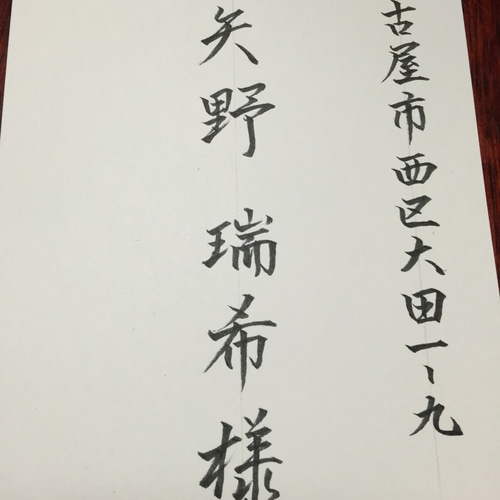 古屋市西区大田一、九
矢野 瑞希様